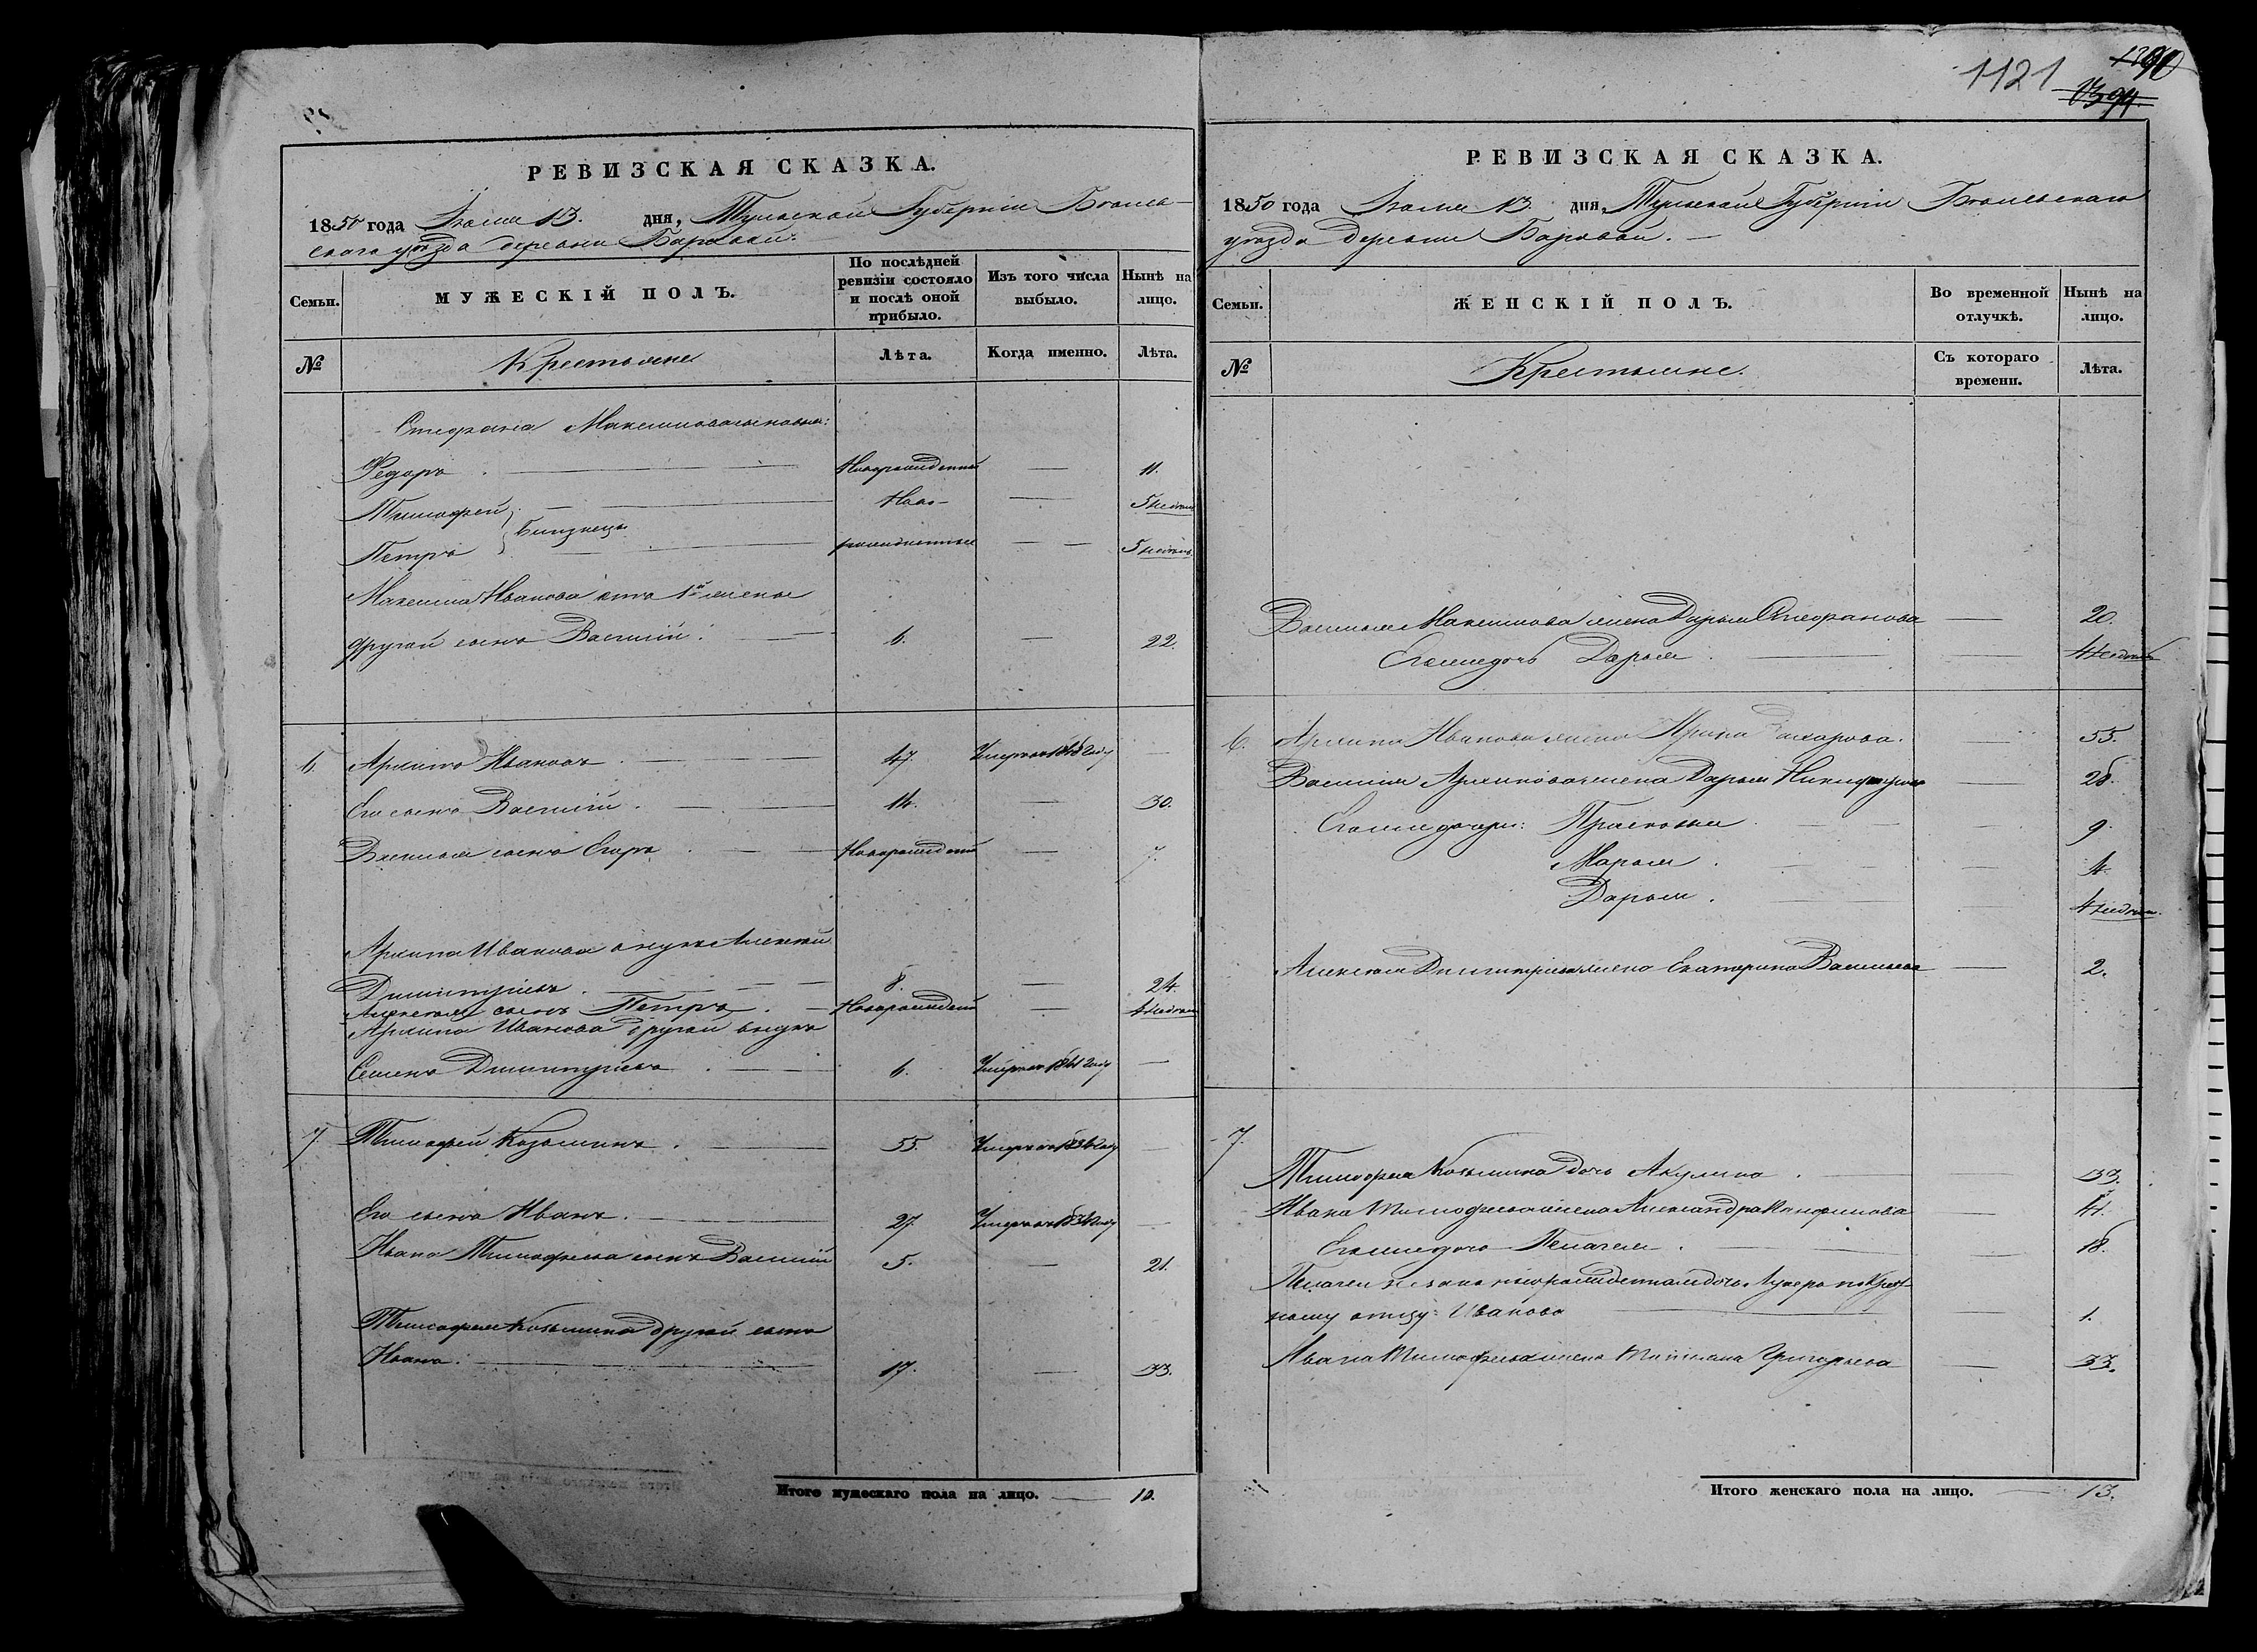 1121
90
РЕВИЗСКАЯ СКАЗКА.
1850 года 13. дня, Тульской Губерніи
скаго уѣзда деревни
Семьи.
МУЖЕСКІЙ ПОЛЪ.
По послѣдней ревизіи состояло и послѣ оной прибыло.
Изъ того числа выбыло.
Нынѣ на лицо.
№
Крестьяне
Лѣта.
Когда именно.
Лѣта.
Стефана Максимова сыновья:
Федоръ Новорожденный 11.
Тимофей Ново- 5 недѣль
близнецы
Петръ рожденные 5 недѣль
Максима Иванова отъ 1й жены
другой сынъ Василій. 6. 22.
6. Архипъ Ивановъ 47. Умеръ въ году
Его сынъ Василій 14. 30.
Василья сынъ Егоръ Новорожденный 7.
Архипа Иванова внукъ Алексѣй
Димитріевъ 8. 24.
Алексѣя сынъ Петръ Новорожденный 4 недѣли
Архипа Иванова другой внукъ
Семенъ Димитріевъ 6. Умеръ въ 1841 году
7. Тимофей Козьминъ 55. Умеръ въ году
Его сынъ Иванъ 27. Умеръ въ году
Ивана Тимофеева сынъ Василій 5. 21.
Тимофея Козьмина другой сынъ
Иванъ. 17. 33.
Итого мужескаго пола на лицо. 10.
РЕВИЗСКАЯ СКАЗКА.
1850 года 13. дня, Тульской Губерніи
уѣзда деревни
Семьи.
ЖЕНСКІЙ ПОЛЪ.
Во временной отлучкѣ.
Нынѣ на лицо.
№
Крестьяне.
Съ котораго времени.
Лѣта.
Василья Максимова жена Дарья Стефанова 20.
Его дочь Дарья 4 недѣли
6. Архипа Иванова жена Захарова. 55.
Василія Архипова жена Дарья Никифорова 28.
дочери: Прасковья 9.
Марья 4.
Дарья 4 недѣли
Алексѣя Димитріева жена Екатерина Васильева 2.
7.
Тимофея Козьмина дочь Акулина 33.
Ивана Тимофеева жена Александра 41.
дочь Пелагея 18.
Пелагеи дочь по крест-
ному отцу Иванова 1.
Ивана Тимофеева жена Григорьева 33.
Итого женскаго пола на лицо. 13.